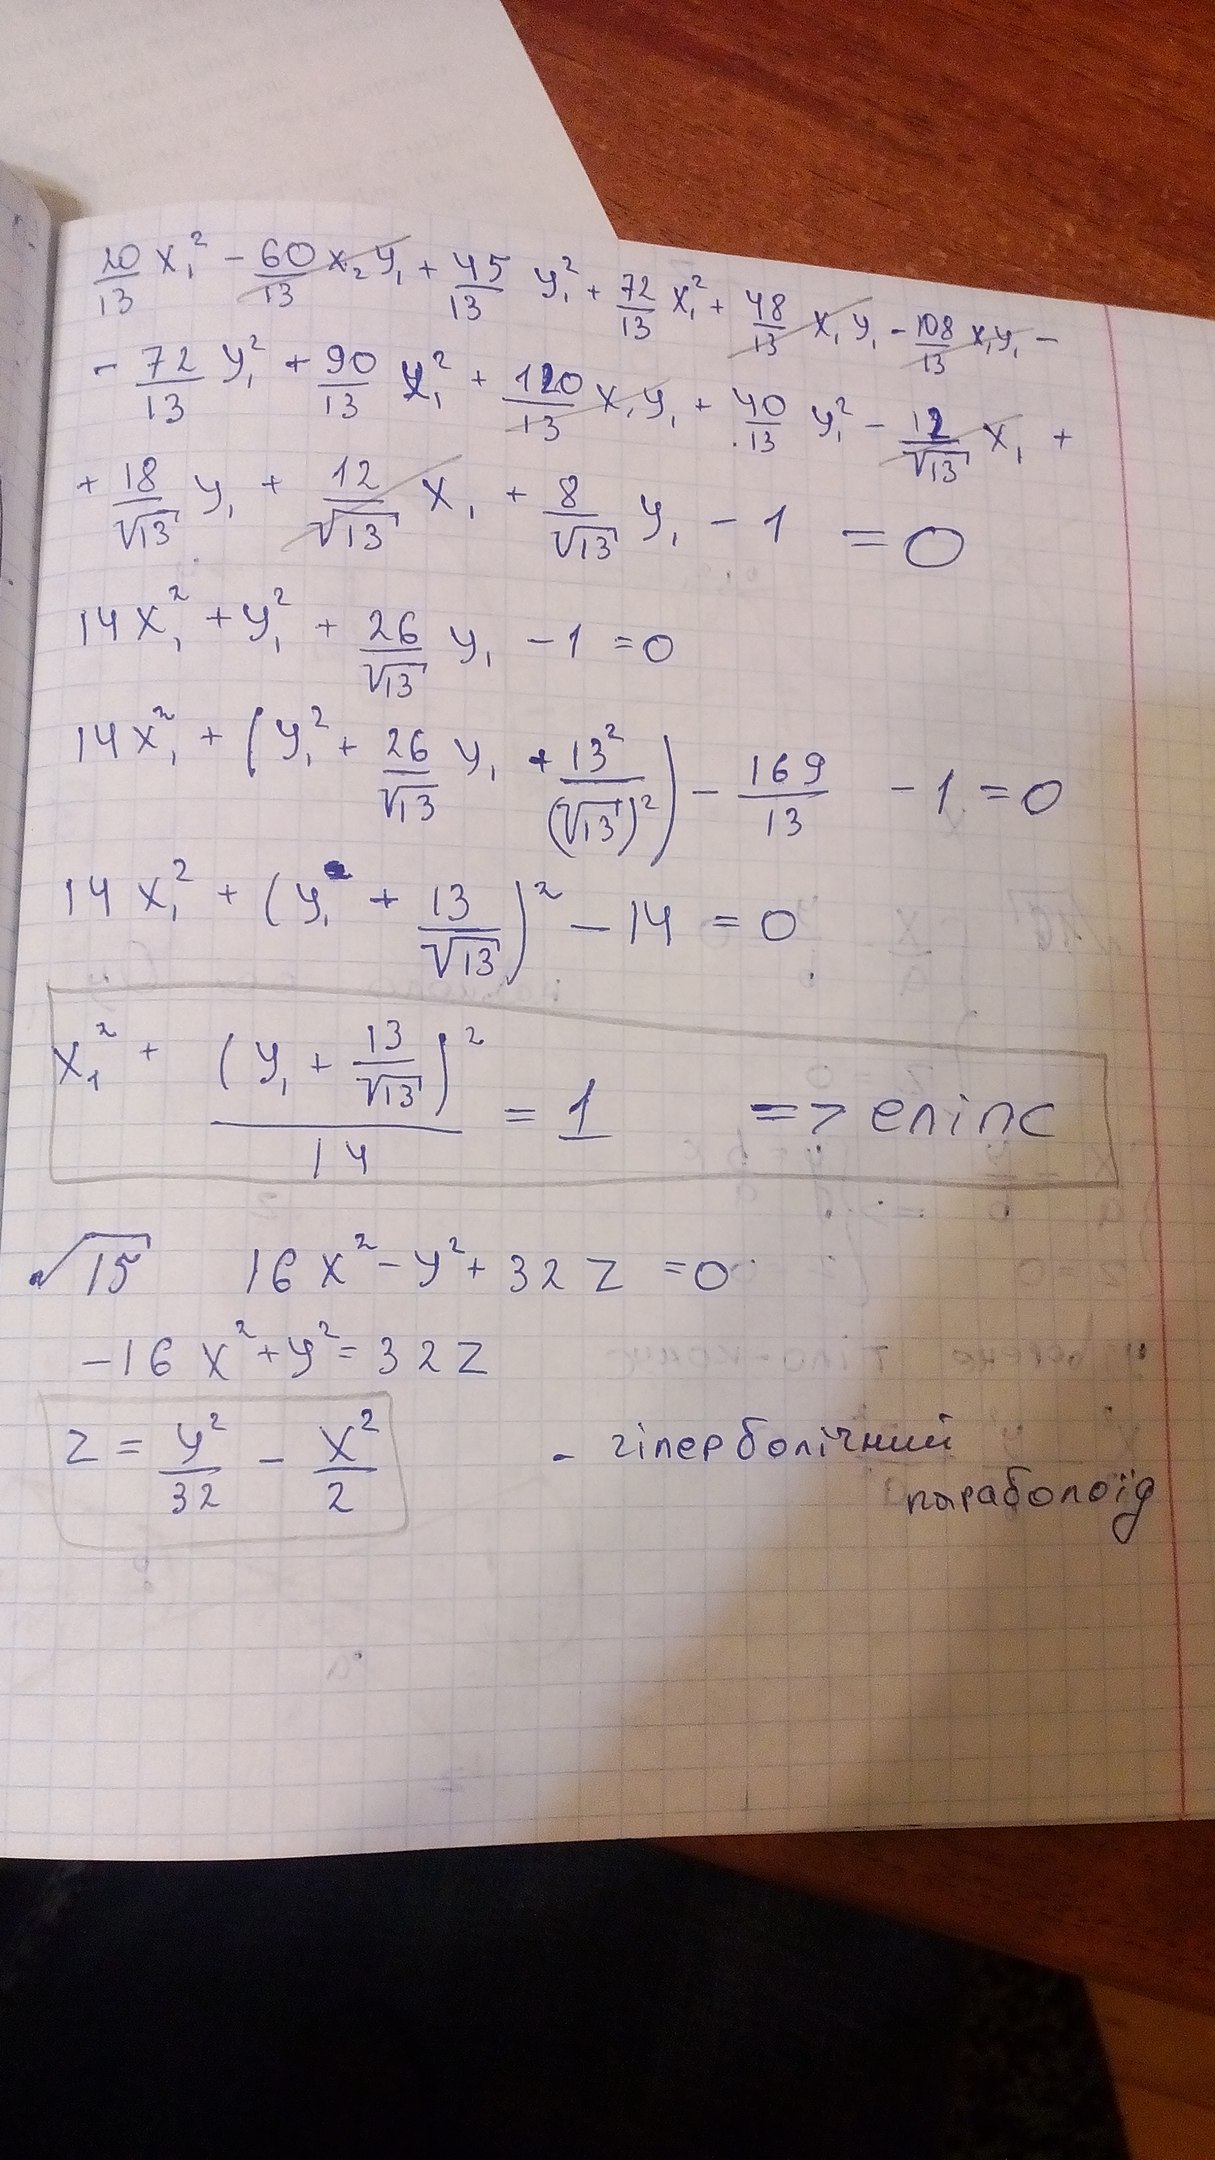 20/13 x₁² - 60/13 x₂y₁ + 45/13 y₁² + 72/13 x₁² + 48/13 x₁y₁ - 108/13 x₁y₁ -
- 72/13 y₁² + 90/13 x₁² + 120/13 x₁y₁ + 40/13 y₁² - 12/√13 x₁ +
+ 18/√13 y₁ + 12/√13 x₁ + 8/√13 y₁ - 1 = 0
14x₁² + y₁² + 26/√13 y₁ - 1 = 0
14x₁² + (y₁² + 26/√13 y₁ + 13²/(√13)²) - 169/13 - 1 = 0
14x₁² + (y₁ + 13/√13)² - 14 = 0
x₁² + (y₁ + 13/√13)²/14 = 1 => еліпс
√15 16x² - y² + 32z = 0
-16x² + y² = 32z
z = y²/32 - x²/2 - гіперболічний
параболоїд